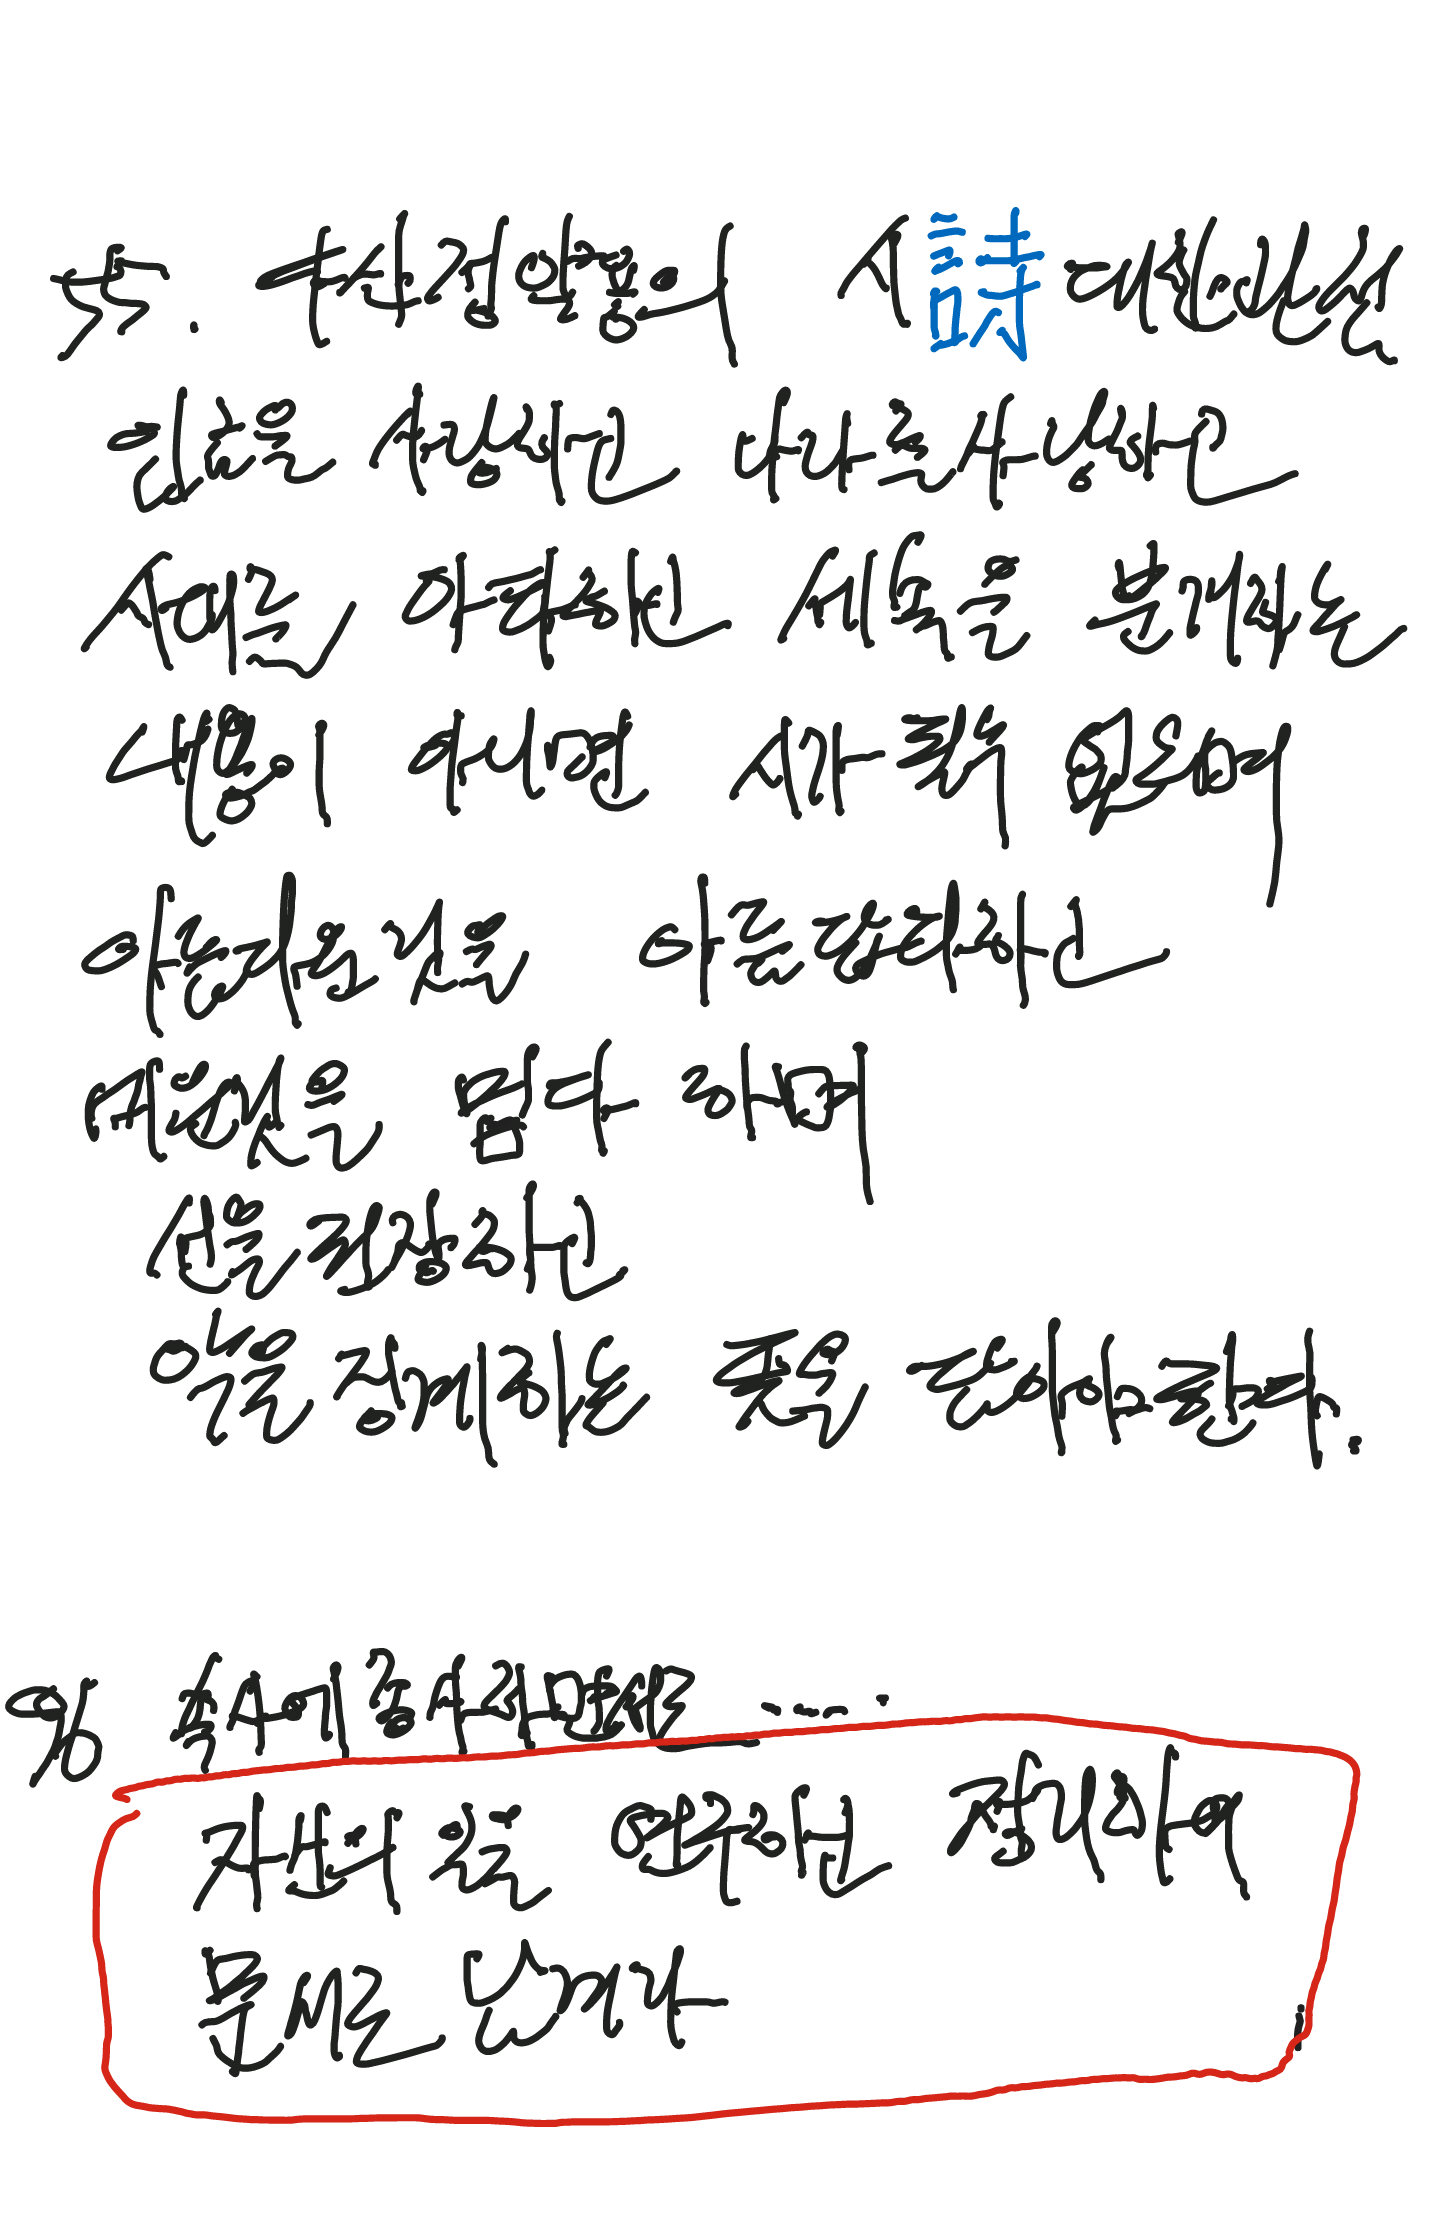 55. 다산정약용의 시詩 대한
임금을 사랑하고 나라를사랑하고
시대를 아파하고 세속을 분개하는
내용이 아니면 시가 될수 없으며
아름다운것을 아름답다하고
미운것을 밉다 하며
선을 권장하고
악을 징계하는 뜻을 담아야한다.
종사하면서도 .....
자신의 일을 연구하고 정리하여
문서로 남겨라